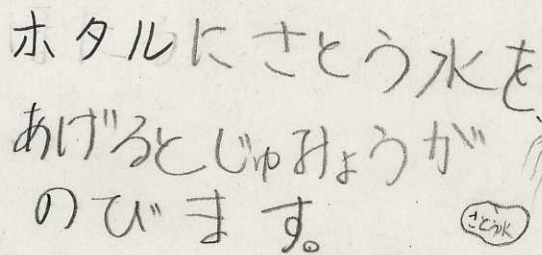 ホタルにさとう水を
あげるとじゅみょうが
のびます。
さとう水